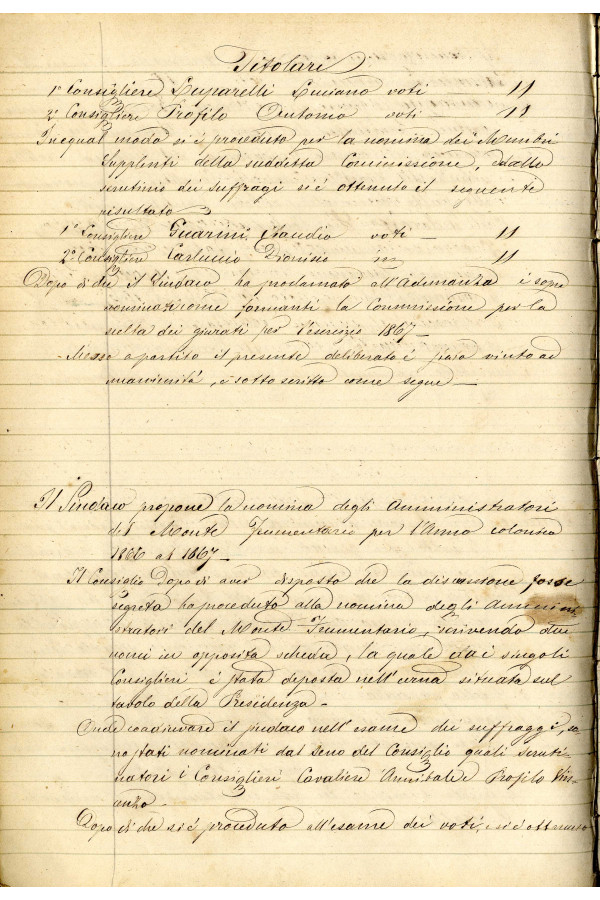 Titolari
1° Consigliere Luparelli Luciano voti — 11
2° Consigliere Profilo Antonio voti — 11
In egual modo si è proceduto per la nomina dei Membri
supplenti della suddetta Commissione, e dallo
scrutinio dei suffragi si è ottenuto il seguente
risultato
1° Consigliere Guarini Claudio voti — 11
2° Consigliere Carluccio Dionisio — 11
Dopo di che il Sindaco ha proclamato all'Adunanza i sopra
nominati come formanti la Commissione per la
scelta dei giurati per l'esercizio 1867 —
Messo a partito il presente deliberato è stato vinto ad
unanimità, e sottoscritto come segue —
Il Sindaco propone la nomina degli Amministratori
del Monte Frumentario per l'Anno colonico
1866 al 1867 —
Il Consiglio Dopo di aver disposto che la discussione fosse
segreta ha proceduto alla nomina degli Ammini
stratori del Monte Frumentario, scrivendo due
nomi in apposita scheda, la quale dai singoli
Consiglieri è stata deposta nell'urna situata sul
tavolo della Presidenza —
Onde coadiuvare il sindaco nell'esame dei suffraggi, so
no stati nominati dal seno del Consiglio quali scruti
natori i Consiglieri Cavaliere Annibale e Profilo Vin
cenzo —
Dopo di che si è proceduto all'esame dei voti, e si è ottenuto